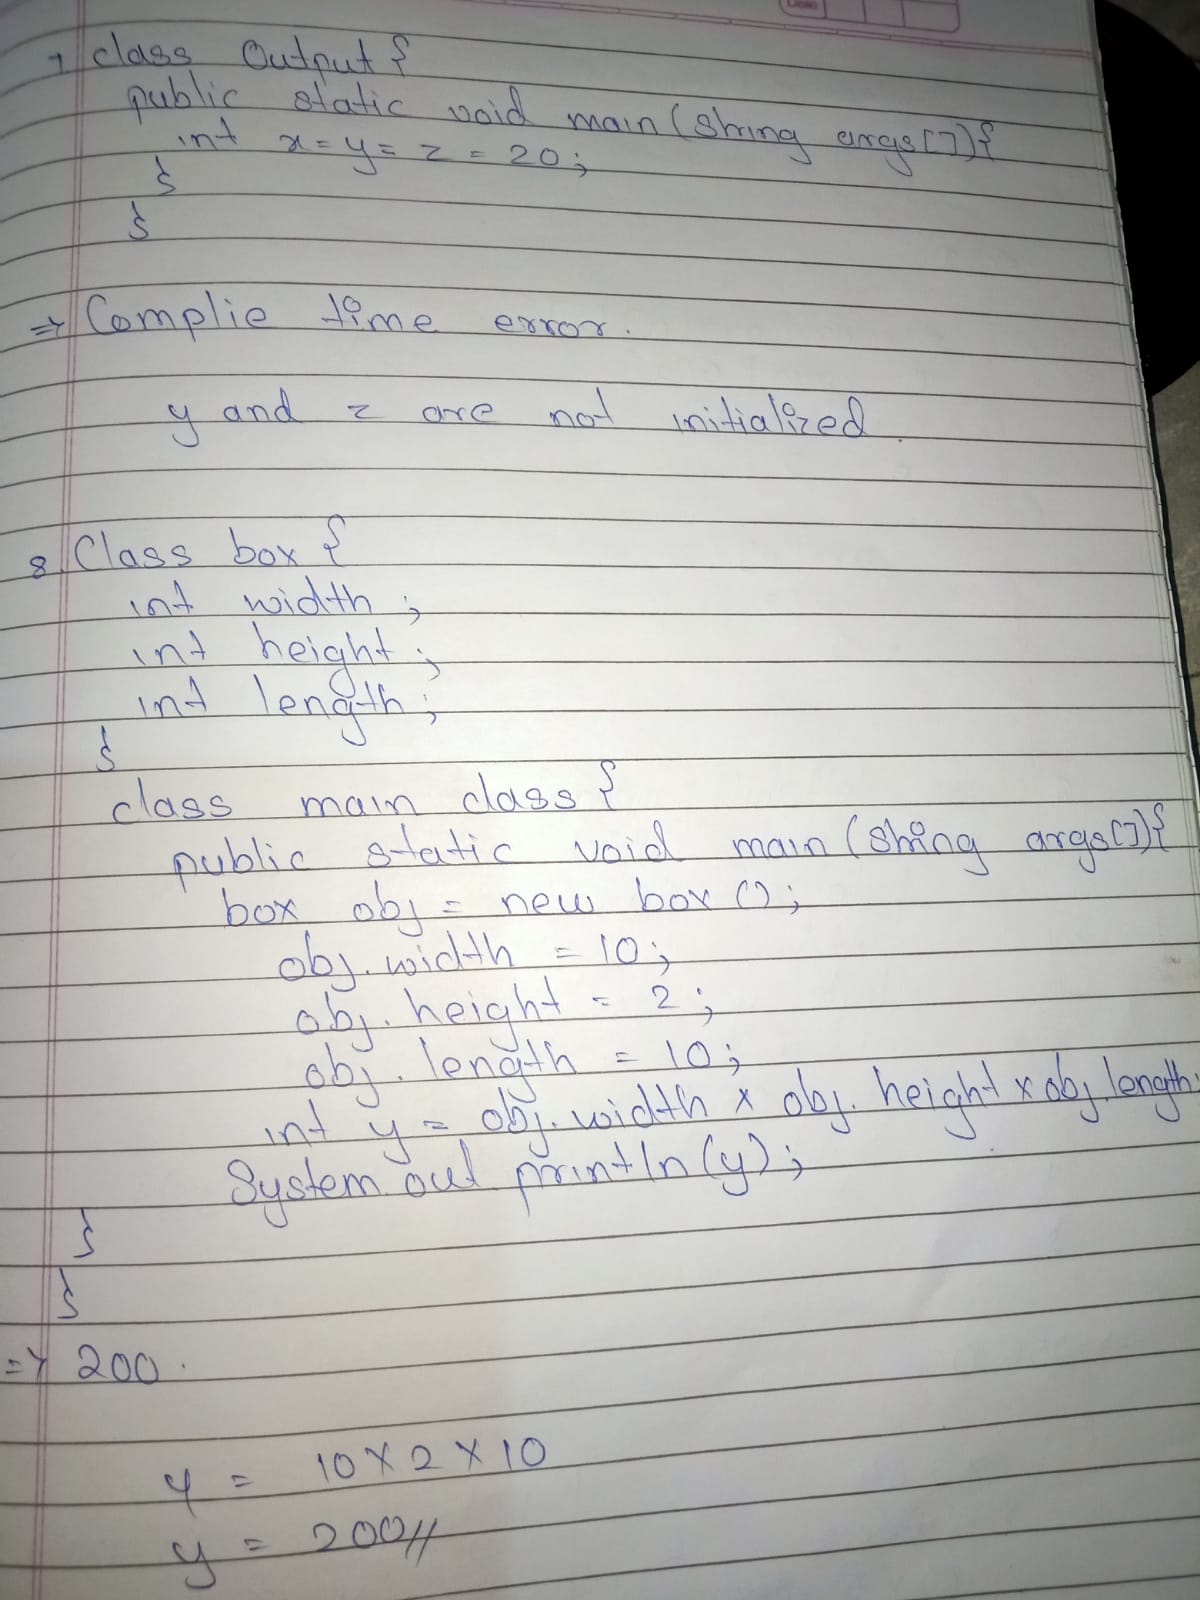 7 class Output {
public static void main (String args[]){
int x = y = z = 20;
}
}
=> Complie time error.
y and z are not initialized.
8. Class box {
int width ;
int height ;
int length ;
}
class main class {
public static void main (String args[]){
box obj = new box ();
obj. width = 10;
obj. height = 2;
obj. length = 10;
int y = obj. width x obj. height x obj. length;
System. out println (y);
}
}
=> 200.
y = 10 X 2 X 10
y = 200//